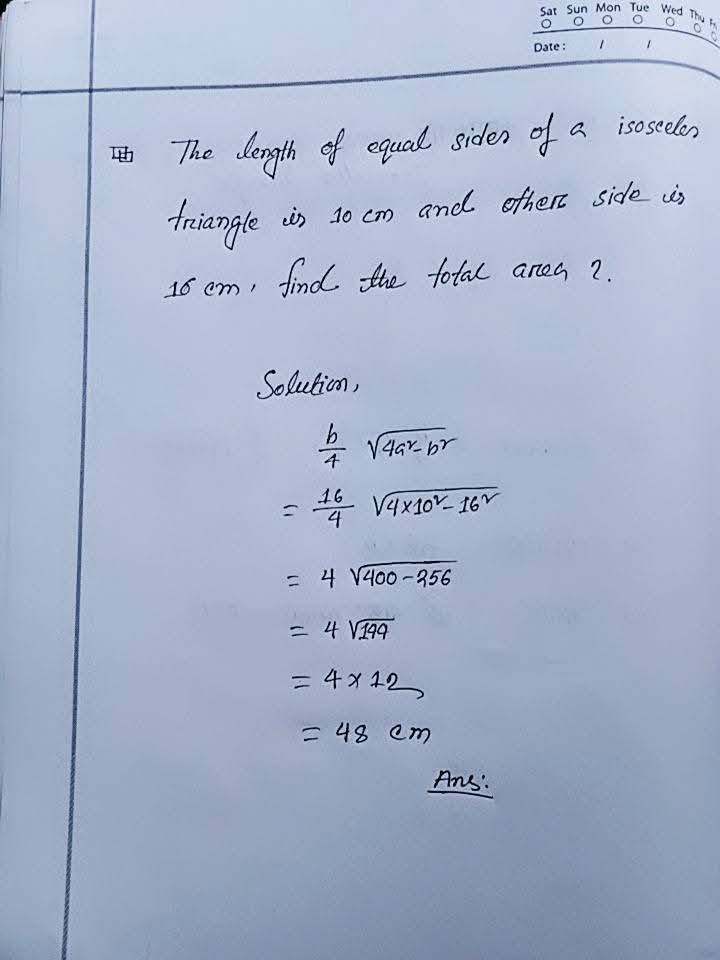 Sat Sun Mon Tue Wed Thu Fri
Date : / /
The length of equal sides of a isosceles
triangle is 10 cm and other side is
16 cm, find the total area ?.
Solution,
b/4 √4a²-b²
= 16/4 √4×10²-16²
= 4 √400-256
= 4 √144
= 4 × 12
= 48 cm
Ans: